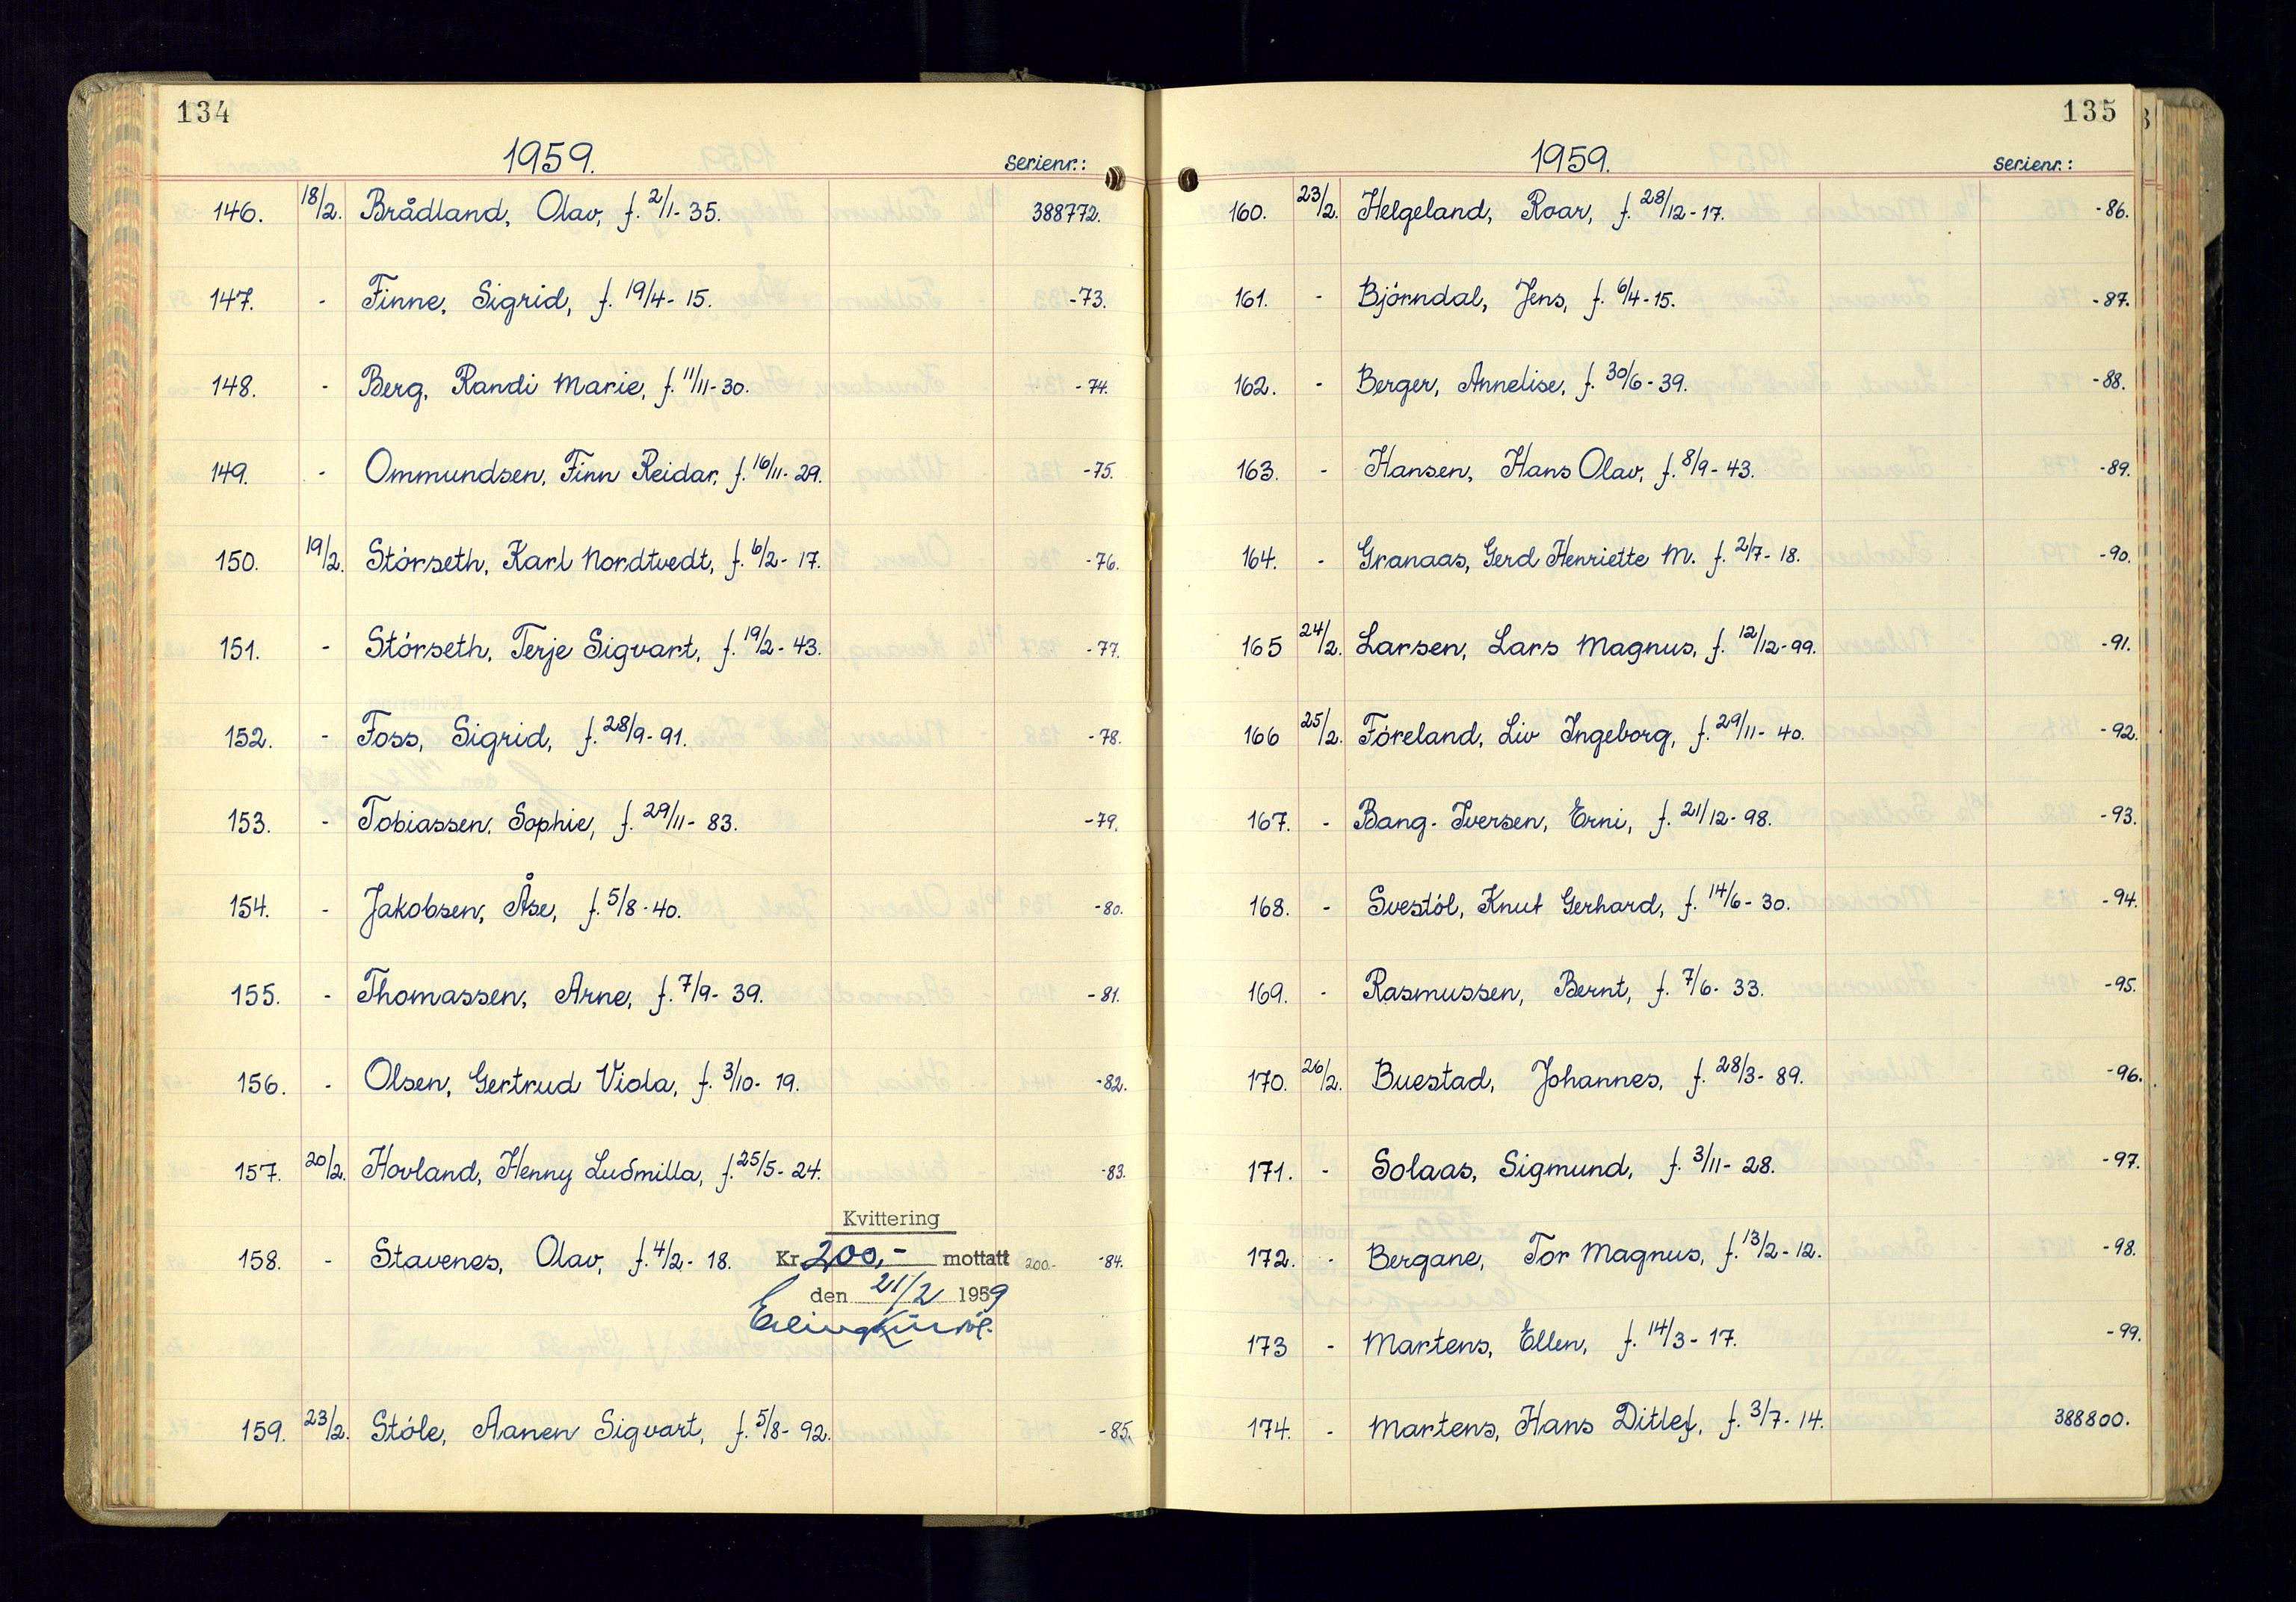 134
1959.
serienr.:
146. 18/2. Brådland, Olav, f. 2/1-35. 388772.
147. - Finne, Sigrid, f. 19/4-15. -73.
148. - Berg, Randi Marie, f. 11/11-30. -74.
149. - Ommundsen, Finn Reidar, f. 16/11-29. -75.
150. 19/2. Stórseth, Karl Nordtvedt, f. 6/2-17. -76.
151. - Stórseth, Terje Sigvart, f. 19/2-43. -77.
152. - Foss, Sigrid, f. 28/9-91. -78.
153. - Tobiassen, Sophie, f. 29/11-83. -79.
154. - Jakobsen, Åse, f. 5/8-40. -80.
155. - Thomassen, Arne, f. 7/9-39. -81.
156. - Olsen, Gertrud Viola, f. 3/10-19. -82.
157. 20/2. Hovland, Henny Ludmilla, f. 25/5-24. -83.
Kvittering
158. - Stavenes, Olav, f. 4/2-18. Kr. 200,- mottatt 200.- -84.
den 21/2 1959
159. 23/2. Stóle, Aanen Sigvart, f. 5/8-92. -85.
135
1959.
serienr.:
160. 23/2. Helgeland, Roar, f. 28/12-17. -86.
161. - Bjórndal, Jens, f. 6/4-15. -87.
162. - Berger, Annelise, f. 30/6-39. -88.
163. - Hansen, Hans Olav, f. 8/9-43. -89.
164. - Granaas, Gerd Henriette M. f. 2/7-18. -90.
165 24/2. Larsen, Lars Magnus, f. 12/12-99. -91.
166 25/2. Fóreland, Liv Ingeborg, f. 29/11-40. -92.
167. - Bang-Iversen, Erni, f. 21/12-98. -93.
168. - Svestól, Knut Gerhard, f. 14/6-30. -94.
169. - Rasmussen, Bernt, f. 7/6-33. -95.
170. 26/2. Buestad, Johannes, f. 28/3-89. -96.
171. - Solaas, Sigmund, f. 3/11-28. -97.
172. - Bergane, Tor Magnus, f. 13/2-12. -98.
173 - Martens, Ellen, f. 14/3-17. -99.
174. - Martens, Hans Ditlef, f. 3/7-14. 388800.